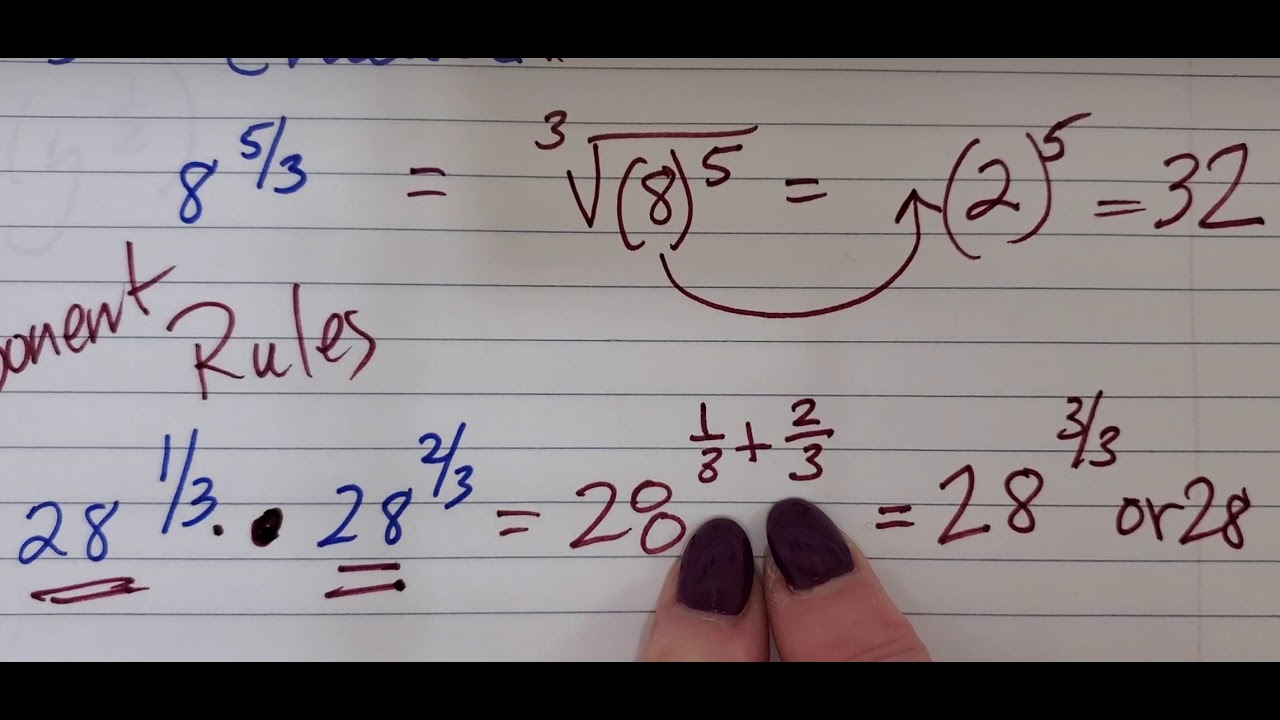 8^5/3 = ³√(8)^5 = (2)^5 = 32
Rules
28^1/3 · 28^2/3 = 28^1/3 + 2/3 = 28^3/3 or 28